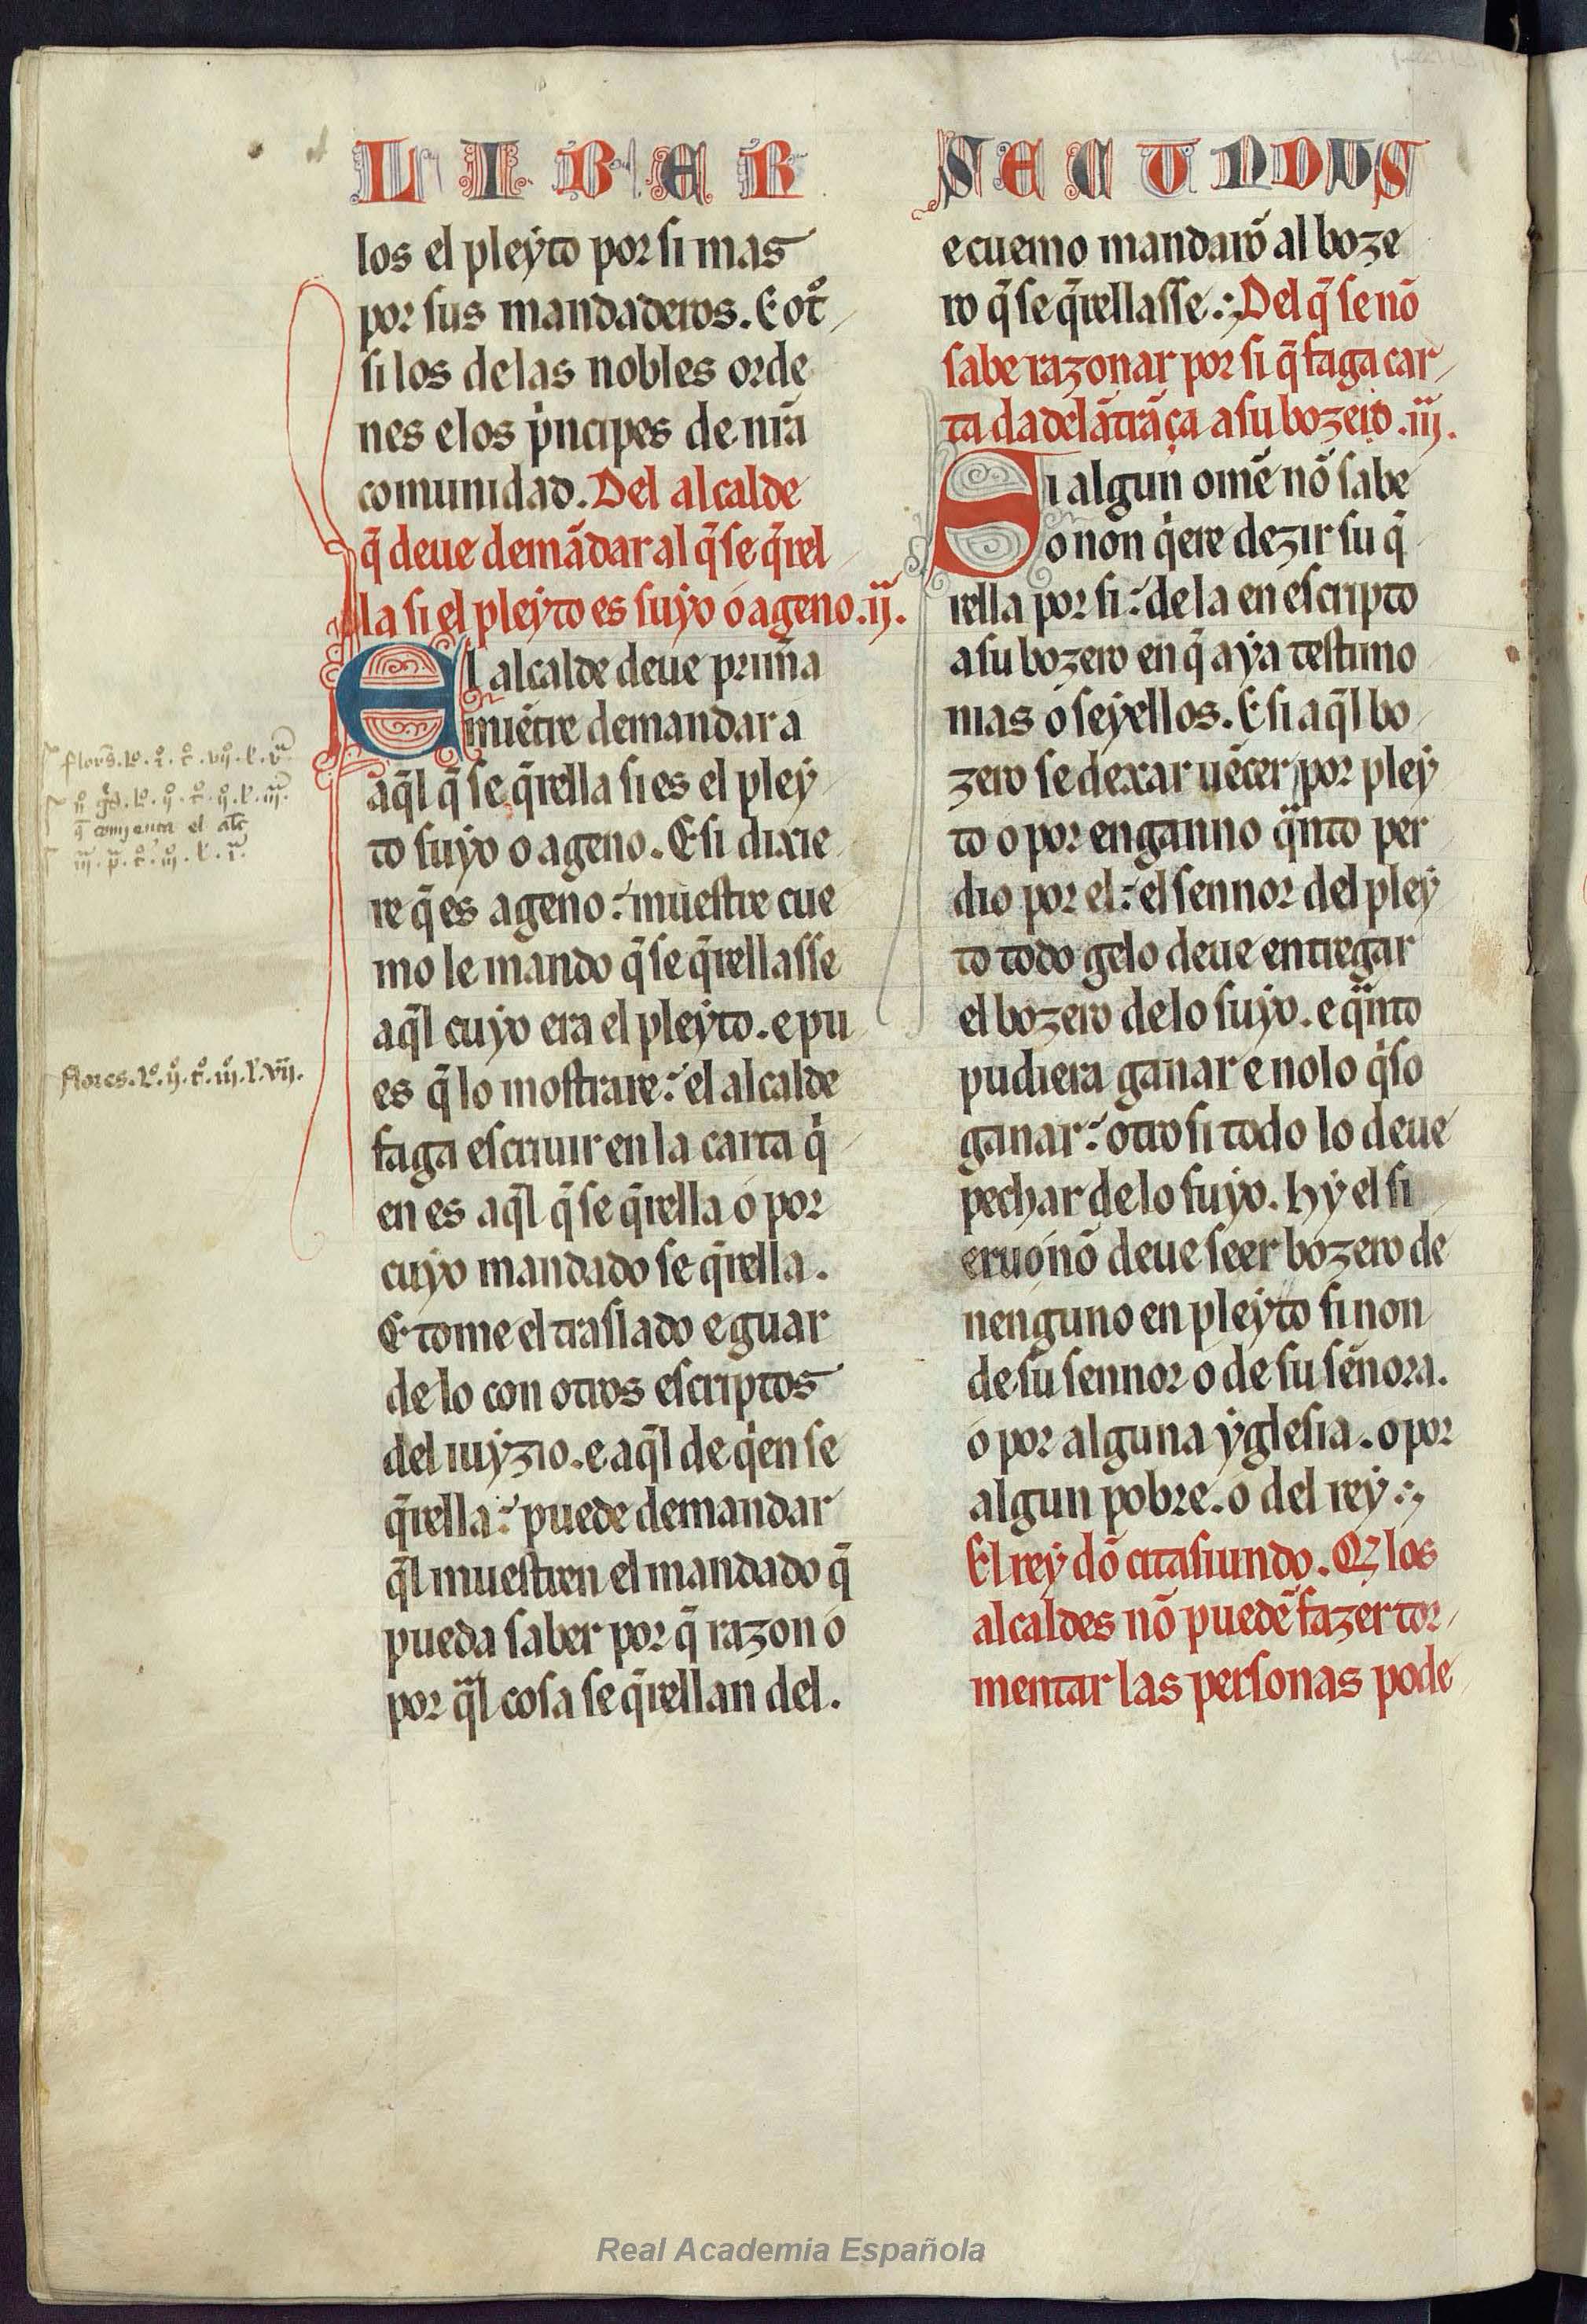 LIBER
los el pleyto por si mas
por sus mandaderos. E otͦ
si los delas nobles orde
nes elos pͥncipes de nr̃a
comunidad. Del alcalde
q̃ deue demãdar al q̃ se q̃rel
la si el pleyto es suyo o ageno .ij.
El alcalde deue primͣa
muẽtre demandar a
aq̃l q̃ se q̃rella si es el pley
to suyo o ageno. E si dixie
re q̃ es ageno: muestre cue
mo le mando q̃ se q̃rellasse
aq̃l cuyo era el pleyto. e pu
es q̃ lo mostrare: el alcalde
faga escriuir en la carta qͥ
en es aq̃l q̃ se q̃rella o por
cuyo mandado se q̃rella.
E tome el traslado e guar
de lo con otros escriptos
del iuyzio. e aq̃l de qͥen se
q̃rella: puede demandar
q̃l muestren el mandado q̃
pueda saber por q̃ razon o
por qͣl cosa se q̃rellan del.
flores. lͦ. ij. tͦ. iij. l. vij.
SECUNDUS
e cuemo mandarõ al boze
ro q̃ se q̃rellasse. Del q̃ se nõ
sabe razonar por si q̃ faga car
ta dadelãtrãça a su bozero .iij.
Si algun omẽ nõ sabe
o non qͥere dezir su q̃
rella por si: de la en escripto
a su bozero en q̃ aya testimo
nias o seyellos. E si aq̃l bo
zero se dexar uẽcer por pley
to o por enganno qͣnto per
dio por el: el sennor del pley
to todo gelo deue entregar
el bozero de lo suyo. e qͣnto
pudiera ganar e nolo qͥso
ganar: otro si todo lo deue
pechar de lo suyo. Hy el si
eruo nõ deue seer bozero de
nenguno en pleyto si non
de su sennor o de su sẽnora.
o por alguna yglesia. o por
algun pobre. o del rey
El rey dõ citasiundo. Q̃ los
alcaldes nõ puedẽ fazer tor
mentar las personas pode
Real Academia Española